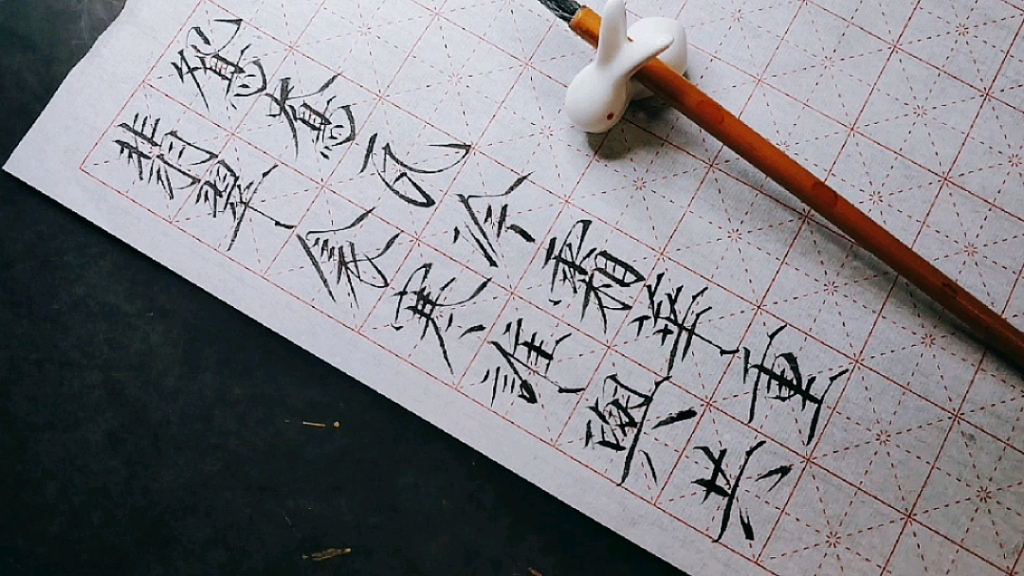 鴛鴦瓦冷霜華重
翡翠衾寒誰與共